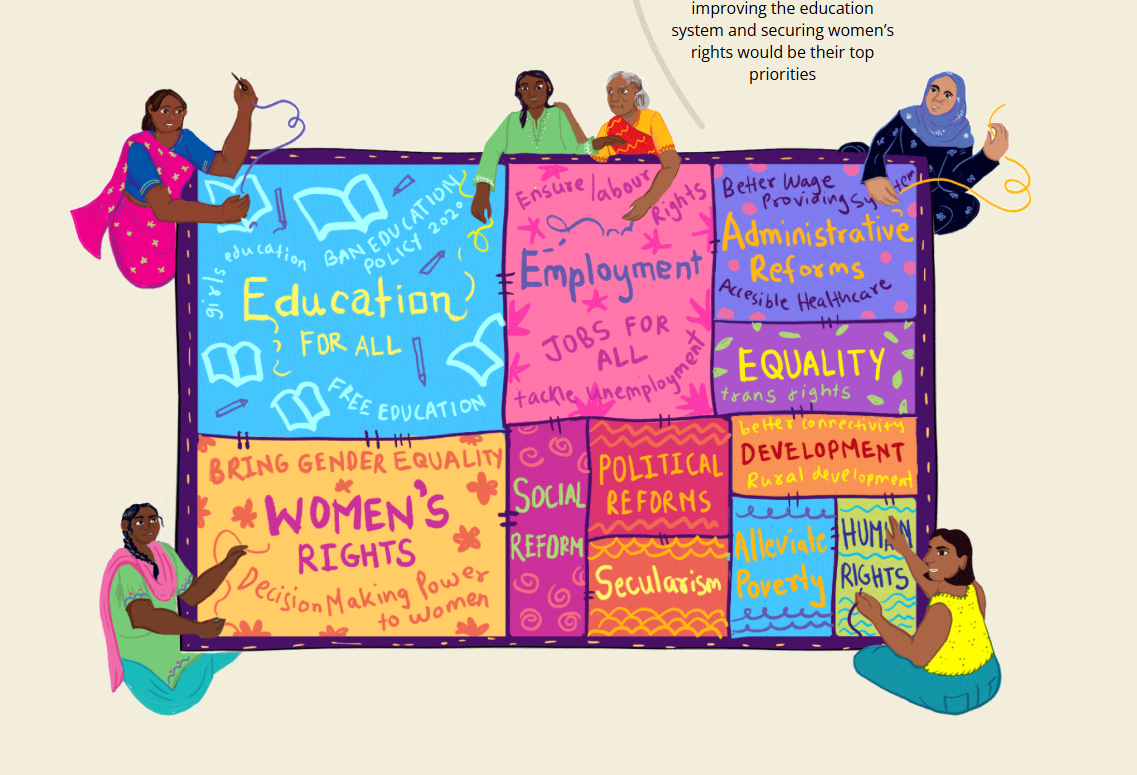 improving the education
system and securing women's
rights would be their top
priorities
BAN EDUCATION
POLICY 2020
girls education
Education
FOR ALL
FREE EDUCATION
Ensure labour
Rights
Employment
JOBS FOR
ALL
tackle Unemployment
Better Wage
Providing
Administrative
Reforms
Accesible Healthcare
EQUALITY
trans rights
BRING GENDER EQUALITY
WOMEN'S
RIGHTS
Decision Making Power
to women
SOCIAL
REFORM
POLITICAL
REFORMS
Secularism
better connectivity
DEVELOPMENT
Rural development
Alleviate
Poverty
HUMAN
RIGHTS